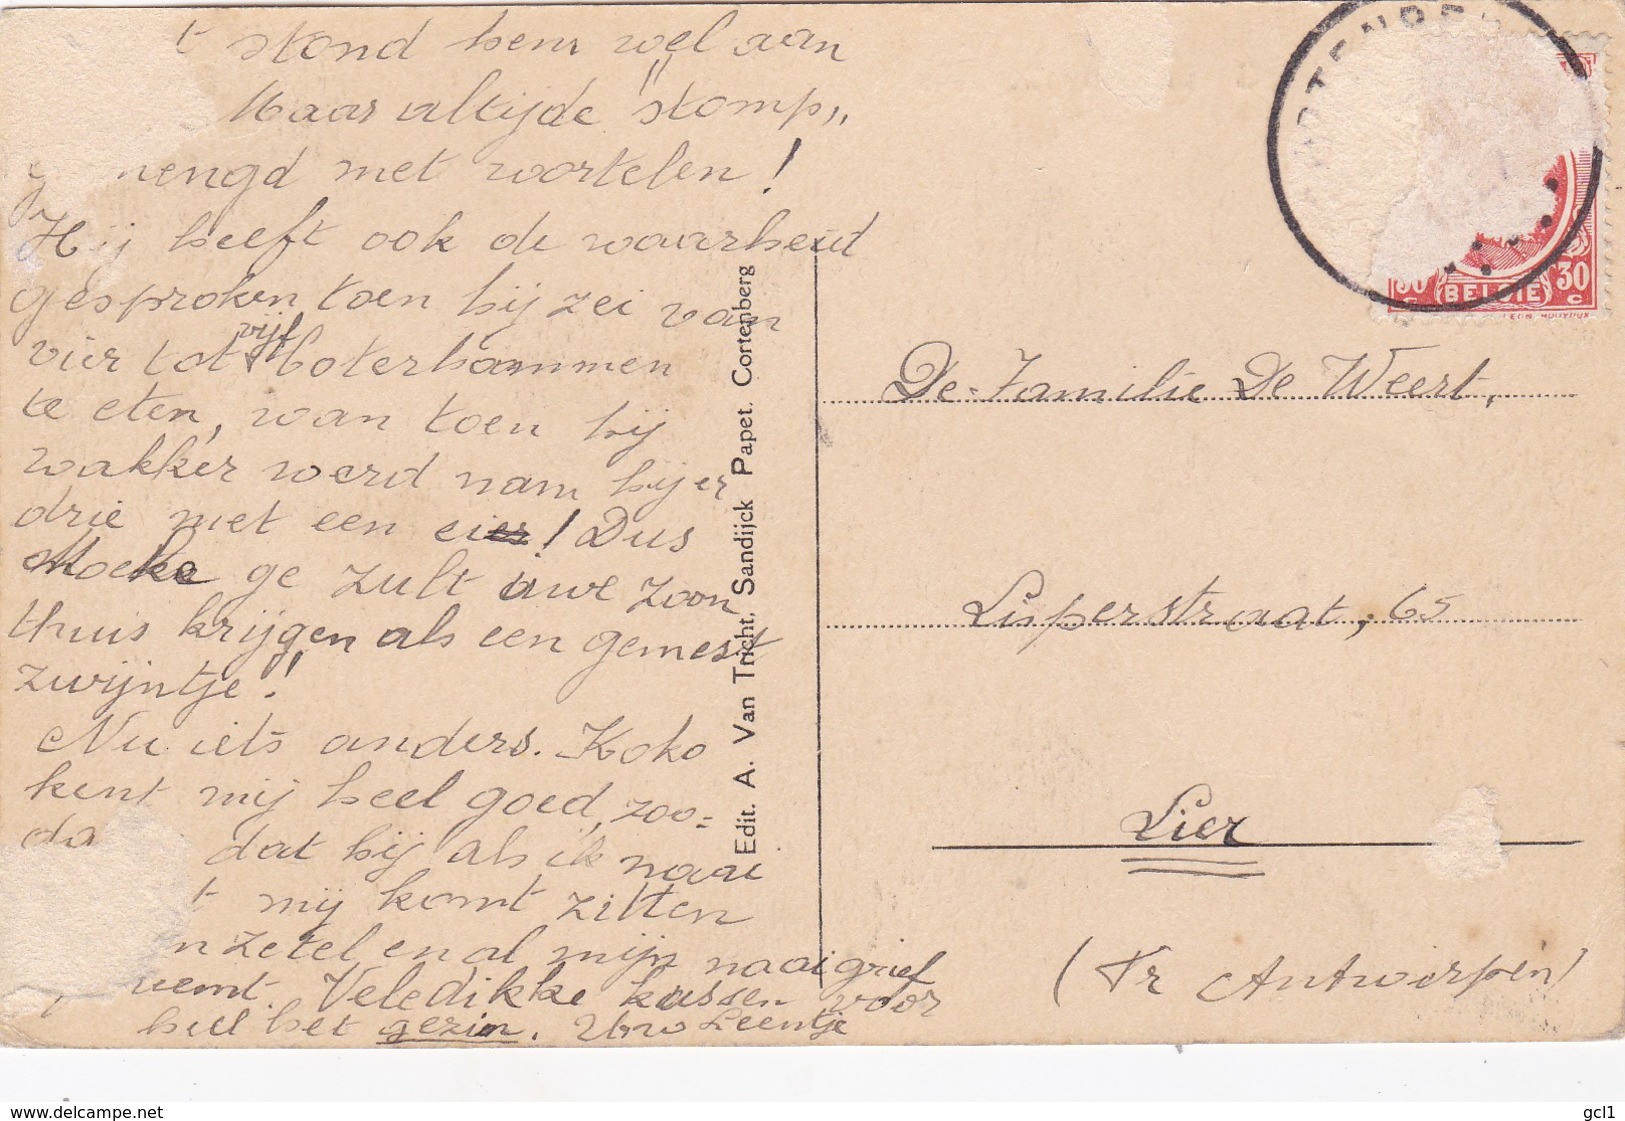 t stond hem wel aan
Maar altijde "stomp,,
gemengd met wortelen!
Hij heeft ook de waarheid
gesproken toen hij zei van
vier tot vijf boterhammen
te eten, want toen hij
wakker werd nam hij er
drie met een ei! Dus
Moeke ge zult uwe zoon
thuis krijgen als een gemest
zwijntje!
Nu iets anders. Koko
kent mij heel goed, zoo=
da dat hij als ik naai
t mij komt zitten
n zetel en al mijn naaigrief
neemt. Veledikke kussen voor
heel het gezin. Uw Leentje
Edit. A. Van Tricht, Sandijck Papet. Cortenberg
BELGIE
30 C
30 C
De Familie De Weert,
Lisperstraat, 65
Lier
(Pr Antwerpen)
www.delcampe.net
gcl1